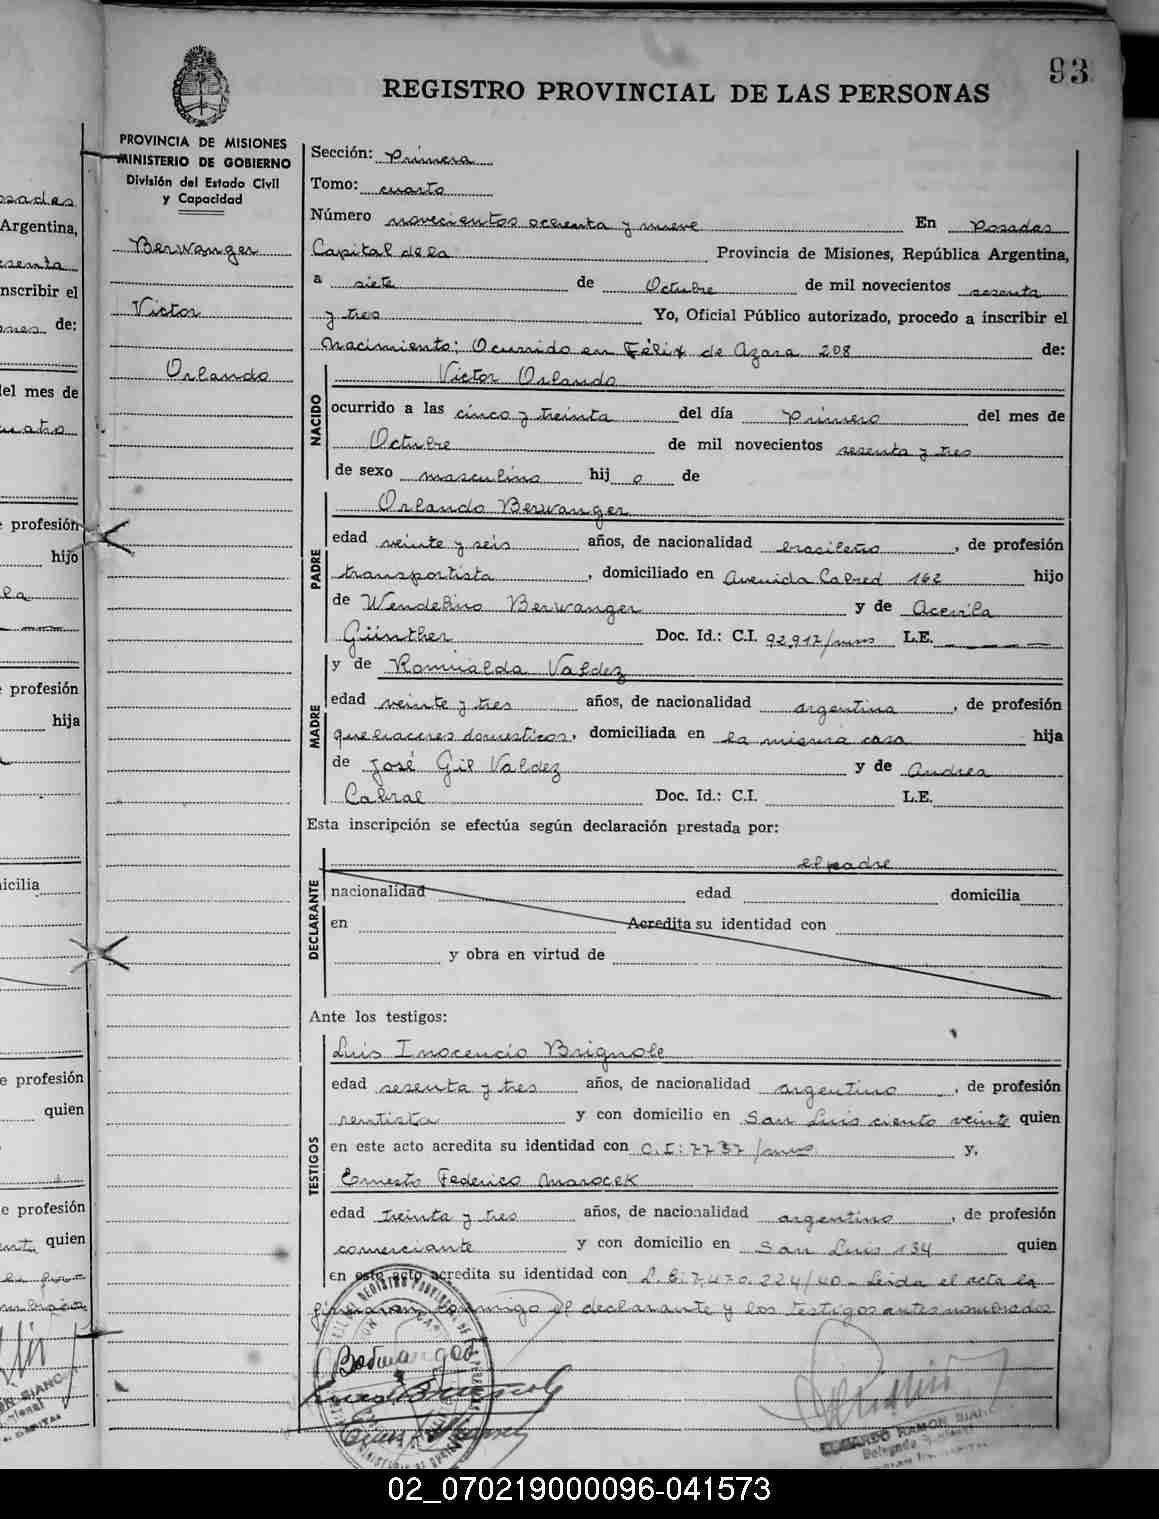 93
REGISTRO PROVINCIAL DE LAS PERSONAS
PROVINCIA DE MISIONES
MINISTERIO DE GOBIERNO
División del Estado Civil
y Capacidad
Berwanger
Victor
Orlando
Sección: Primera
Tomo: cuarto
Número novecientos ochenta y nueve En Posadas
Capital de la Provincia de Misiones, República Argentina,
a siete de Octubre de mil novecientos sesenta
y tres Yo, Oficial Público autorizado, procedo a inscribir el
Nacimiento; Ocurrido en Félix de Azara 208 de:
NACIDO
Victor Orlando
ocurrido a las cinco y treinta del día Primero del mes de
Octubre de mil novecientos sesenta y tres
de sexo masculino hij o de
PADRE
Orlando Berwanger
edad veinte y seis años, de nacionalidad brasileño, de profesión
transportista, domiciliado en Avenida Cabred 162 hijo
de Wendelino Berwanger y de
Günther Doc. Id.: C.I. 92,917/mnes L.E.
MADRE
y de Romualda Valdez
edad veinte y tres años, de nacionalidad argentina, de profesión
quehaceres domesticos, domiciliada en la misma casa hija
de José Gil Valdez y de Andrea
Cabral Doc. Id.: C.I. L.E.
Esta inscripción se efectúa según declaración prestada por:
DECLARANTE
el padre
nacionalidad edad domicilia
en Acredita su identidad con
y obra en virtud de
Ante los testigos:
TESTIGOS
Luis Inocencio Brignole
edad sesenta y tres años, de nacionalidad argentino, de profesión
rentista y con domicilio en San Luis ciento veinte quien
en este acto acredita su identidad con C.I: 7737/mnes y,
Ernesto Federico Marocek
edad treinta y tres años, de nacionalidad argentino, de profesión
comerciante y con domicilio en San Luis 134 quien
en este acto acredita su identidad con L.E: 7,470.224/40- Leida el acta la
firmaron conmigo el declarante y los testigos antes nombrados
02_070219000096-041573